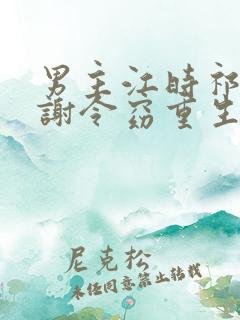 男主江時祁
謝令窈重生
尼克松
未经同意禁止转载